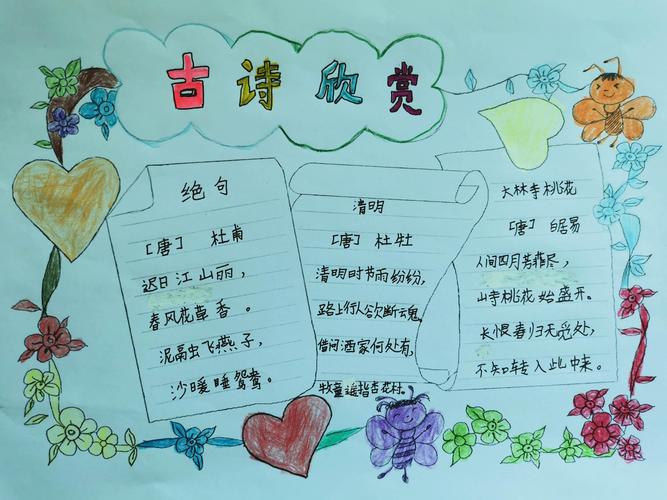 古诗欣赏
绝句
[唐] 杜甫
迟日江山丽，
春风花草香。
泥融飞燕子，
沙暖睡鸳鸯。
清明
[唐] 杜牡
清明时节雨纷纷，
路上行人欲断魂。
借问酒家何处有，
牧童遥指杏花村。
大林寺桃花
[唐] 白居易
人间四月芳菲尽，
山寺桃花始盛开。
长恨春归无觅处，
不知转入此中来。